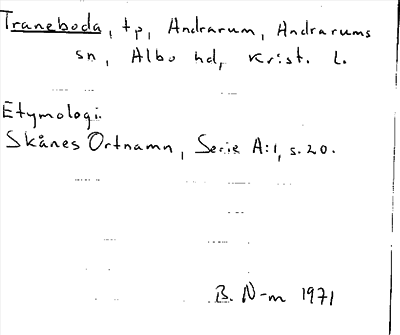 Traneboda, tp, Andrarum, Andrarums
sn, Albo hd, Krist. L.
Etymologi.
Skånes Ortnamn, Serie A:1, s. 20.
B. N-m 1971